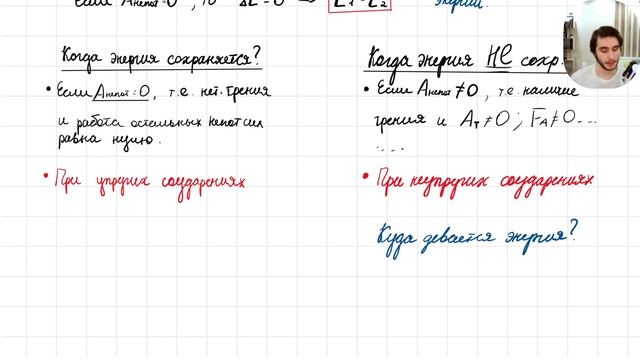 Если Aнепот=0, то ΔE=0 → E₁=E₂ энергии.
Когда энергия сохраняется?
• Если Aнепот=0, т.е. нет трения
и работа остальных непот сил
равна нулю.
• При упругих соударениях
Когда энергия НЕ сохр.
• Если Aнепот ≠0, т.е. наличие
трения и Aт≠0; FA≠0...
....
• При неупругих соударениях
Куда девается энергия?